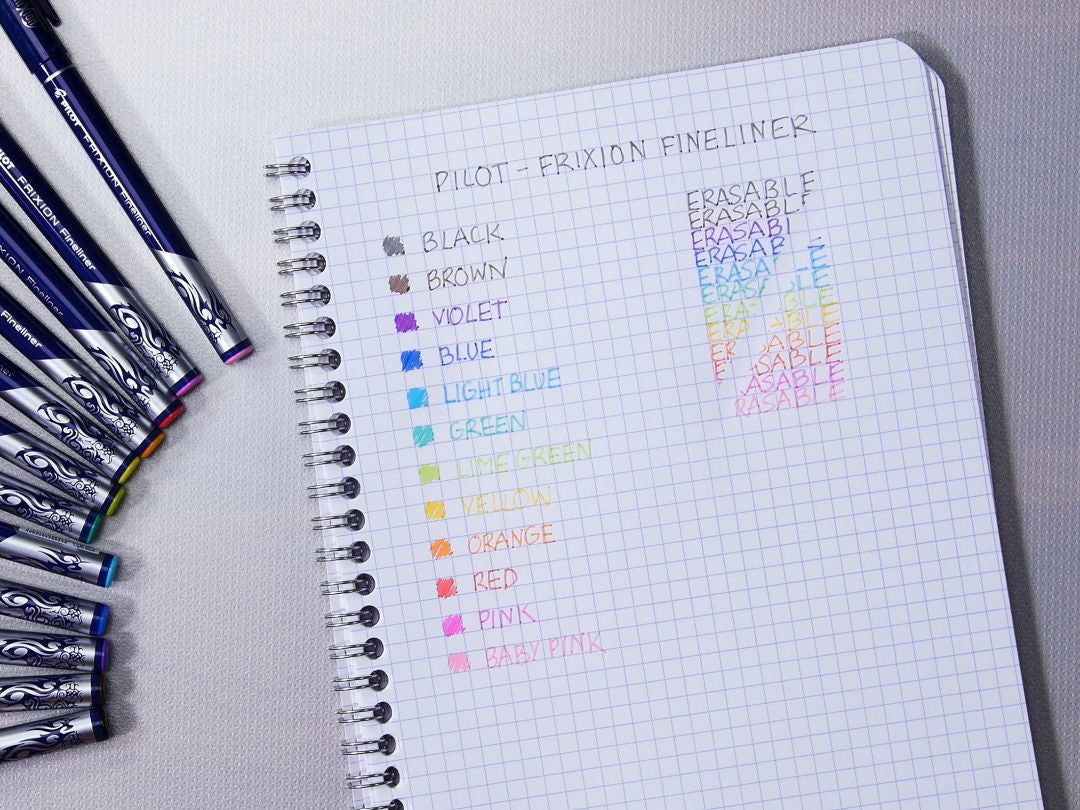 PILOT FRIXION Fineliner
FRIXION Fineliner
Fineliner
Fineliner
PILOT - FRIXION FINELINER
BLACK
BROWN
VIOLET
BLUE
LIGHT BLUE
GREEN
LIME GREEN
YELLOW
ORANGE
RED
PINK
BABY PINK
ERASABLE
ERASABLE
ERASABL
ERASAB
ERASA E
ERASA LE
ERAS BLE
ERA ABLE
ER ABLE
E SABLE
ASABLE
RASABLE